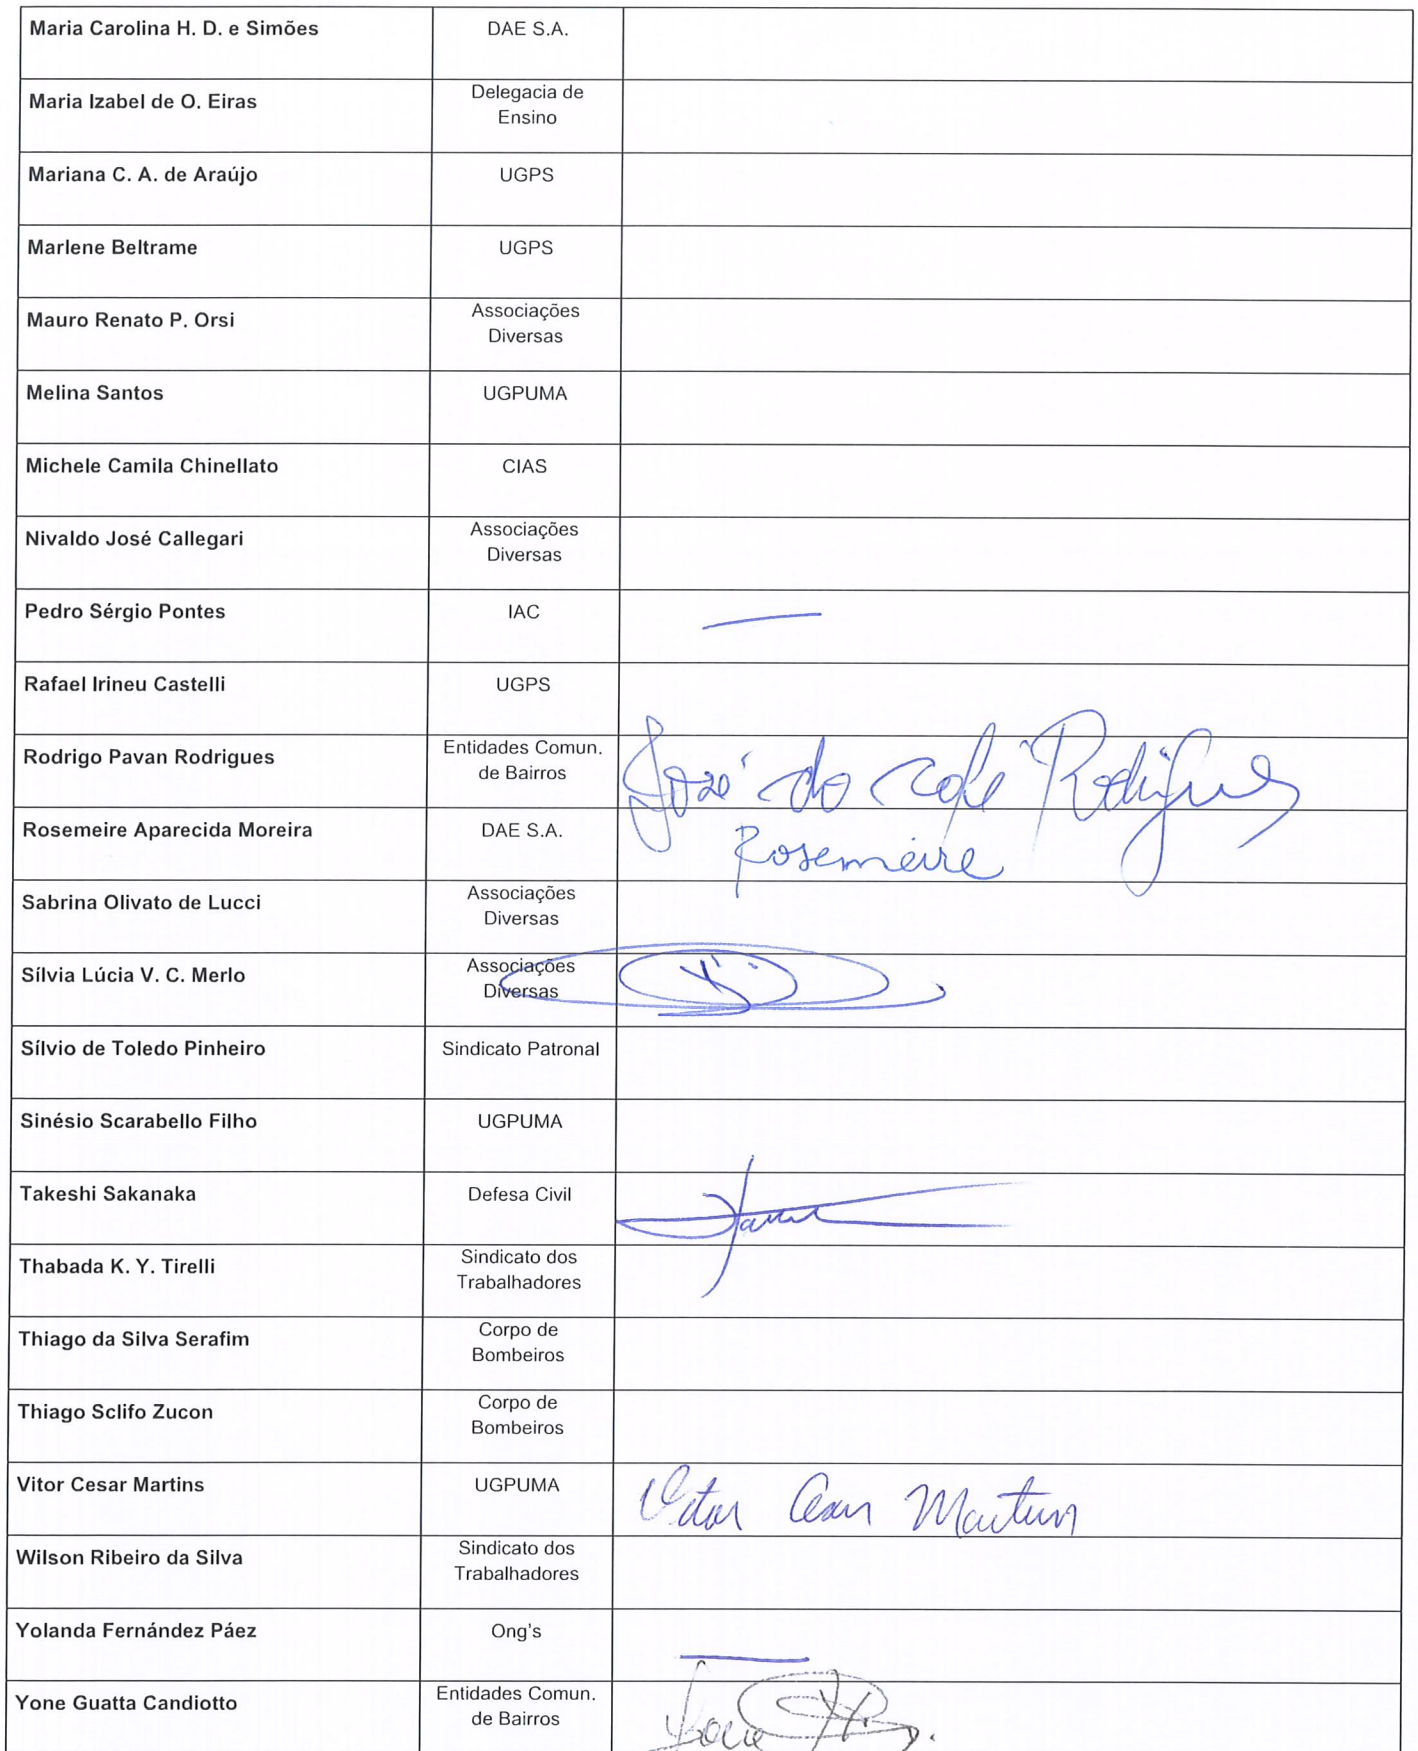 Maria Carolina H. D. e Simões DAE S.A.
Maria Izabel de O. Eiras Delegacia de
Ensino
Mariana C. A. de Araújo UGPS
Marlene Beltrame UGPS
Mauro Renato P. Orsi Associações
Diversas
Melina Santos UGPUMA
Michele Camila Chinellato CIAS
Nivaldo José Callegari Associações
Diversas
Pedro Sérgio Pontes IAC
Rafael Irineu Castelli UGPS
Rodrigo Pavan Rodrigues Entidades Comun.
de Bairros
José do Rodrigues
Rosemeire Aparecida Moreira DAE S.A.
Rosemeire
Sabrina Olivato de Lucci Associações
Diversas
Sílvia Lúcia V. C. Merlo Associações
Diversas
Sílvio de Toledo Pinheiro Sindicato Patronal
Sinésio Scarabello Filho UGPUMA
Takeshi Sakanaka Defesa Civil
Thabada K. Y. Tirelli Sindicato dos
Trabalhadores
Thiago da Silva Serafim Corpo de
Bombeiros
Thiago Sclifo Zucon Corpo de
Bombeiros
Vitor Cesar Martins UGPUMA Vitor Cesar Martins
Wilson Ribeiro da Silva Sindicato dos
Trabalhadores
Yolanda Fernández Páez Ong's
Yone Guatta Candiotto Entidades Comun.
de Bairros